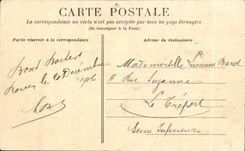 CARTE POSTALE
La correspondance au recto n'est pas acceptée par tous les pays étrangers
(Se renseigner à la Poste)
Partie réservée à la correspondance
Adresse du destinataire
Bons baisers
Rouen le 10 Décembre
1906
Mademoiselle Lucienne Barel
11 Rue Suzanne
Le Tréport
Seine Inférieure